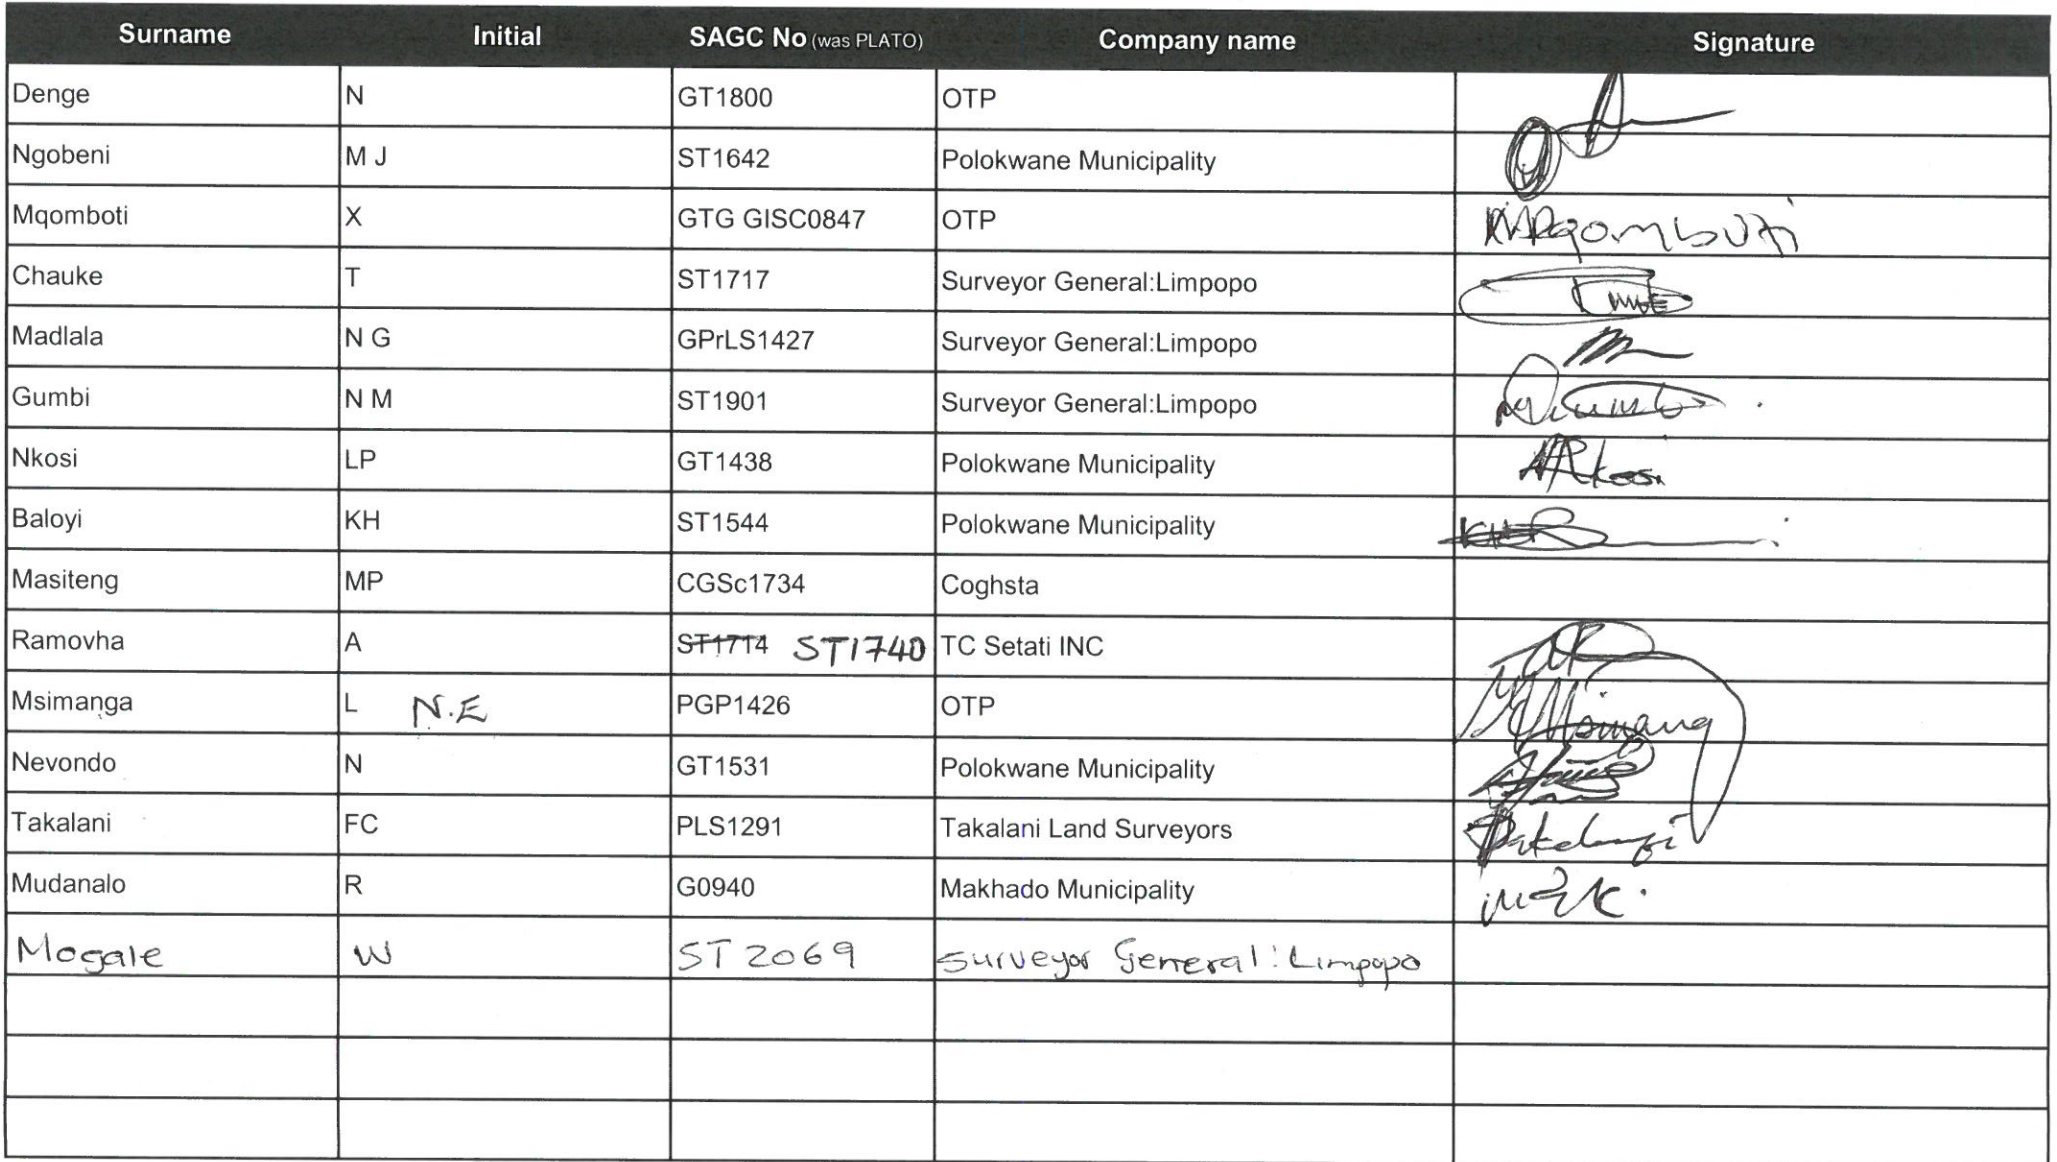 Surname Initial SAGC No (was PLATO) Company name Signature
Denge N GT1800 OTP
Ngobeni M J ST1642 Polokwane Municipality
Mqomboti X GTG GISC0847 OTP
Chauke T ST1717 Surveyor General:Limpopo
Madlala N G GPrLS1427 Surveyor General:Limpopo
Gumbi N M ST1901 Surveyor General:Limpopo
Nkosi LP GT1438 Polokwane Municipality
Baloyi KH ST1544 Polokwane Municipality
Masiteng MP CGSc1734 Coghsta
Ramovha A ST1714 ST1740 TC Setati INC
Msimanga L N.E PGP1426 OTP
Nevondo N GT1531 Polokwane Municipality
Takalani FC PLS1291 Takalani Land Surveyors
Mudanalo R G0940 Makhado Municipality
Mogale W ST 2069 Surveyor General:Limpopo